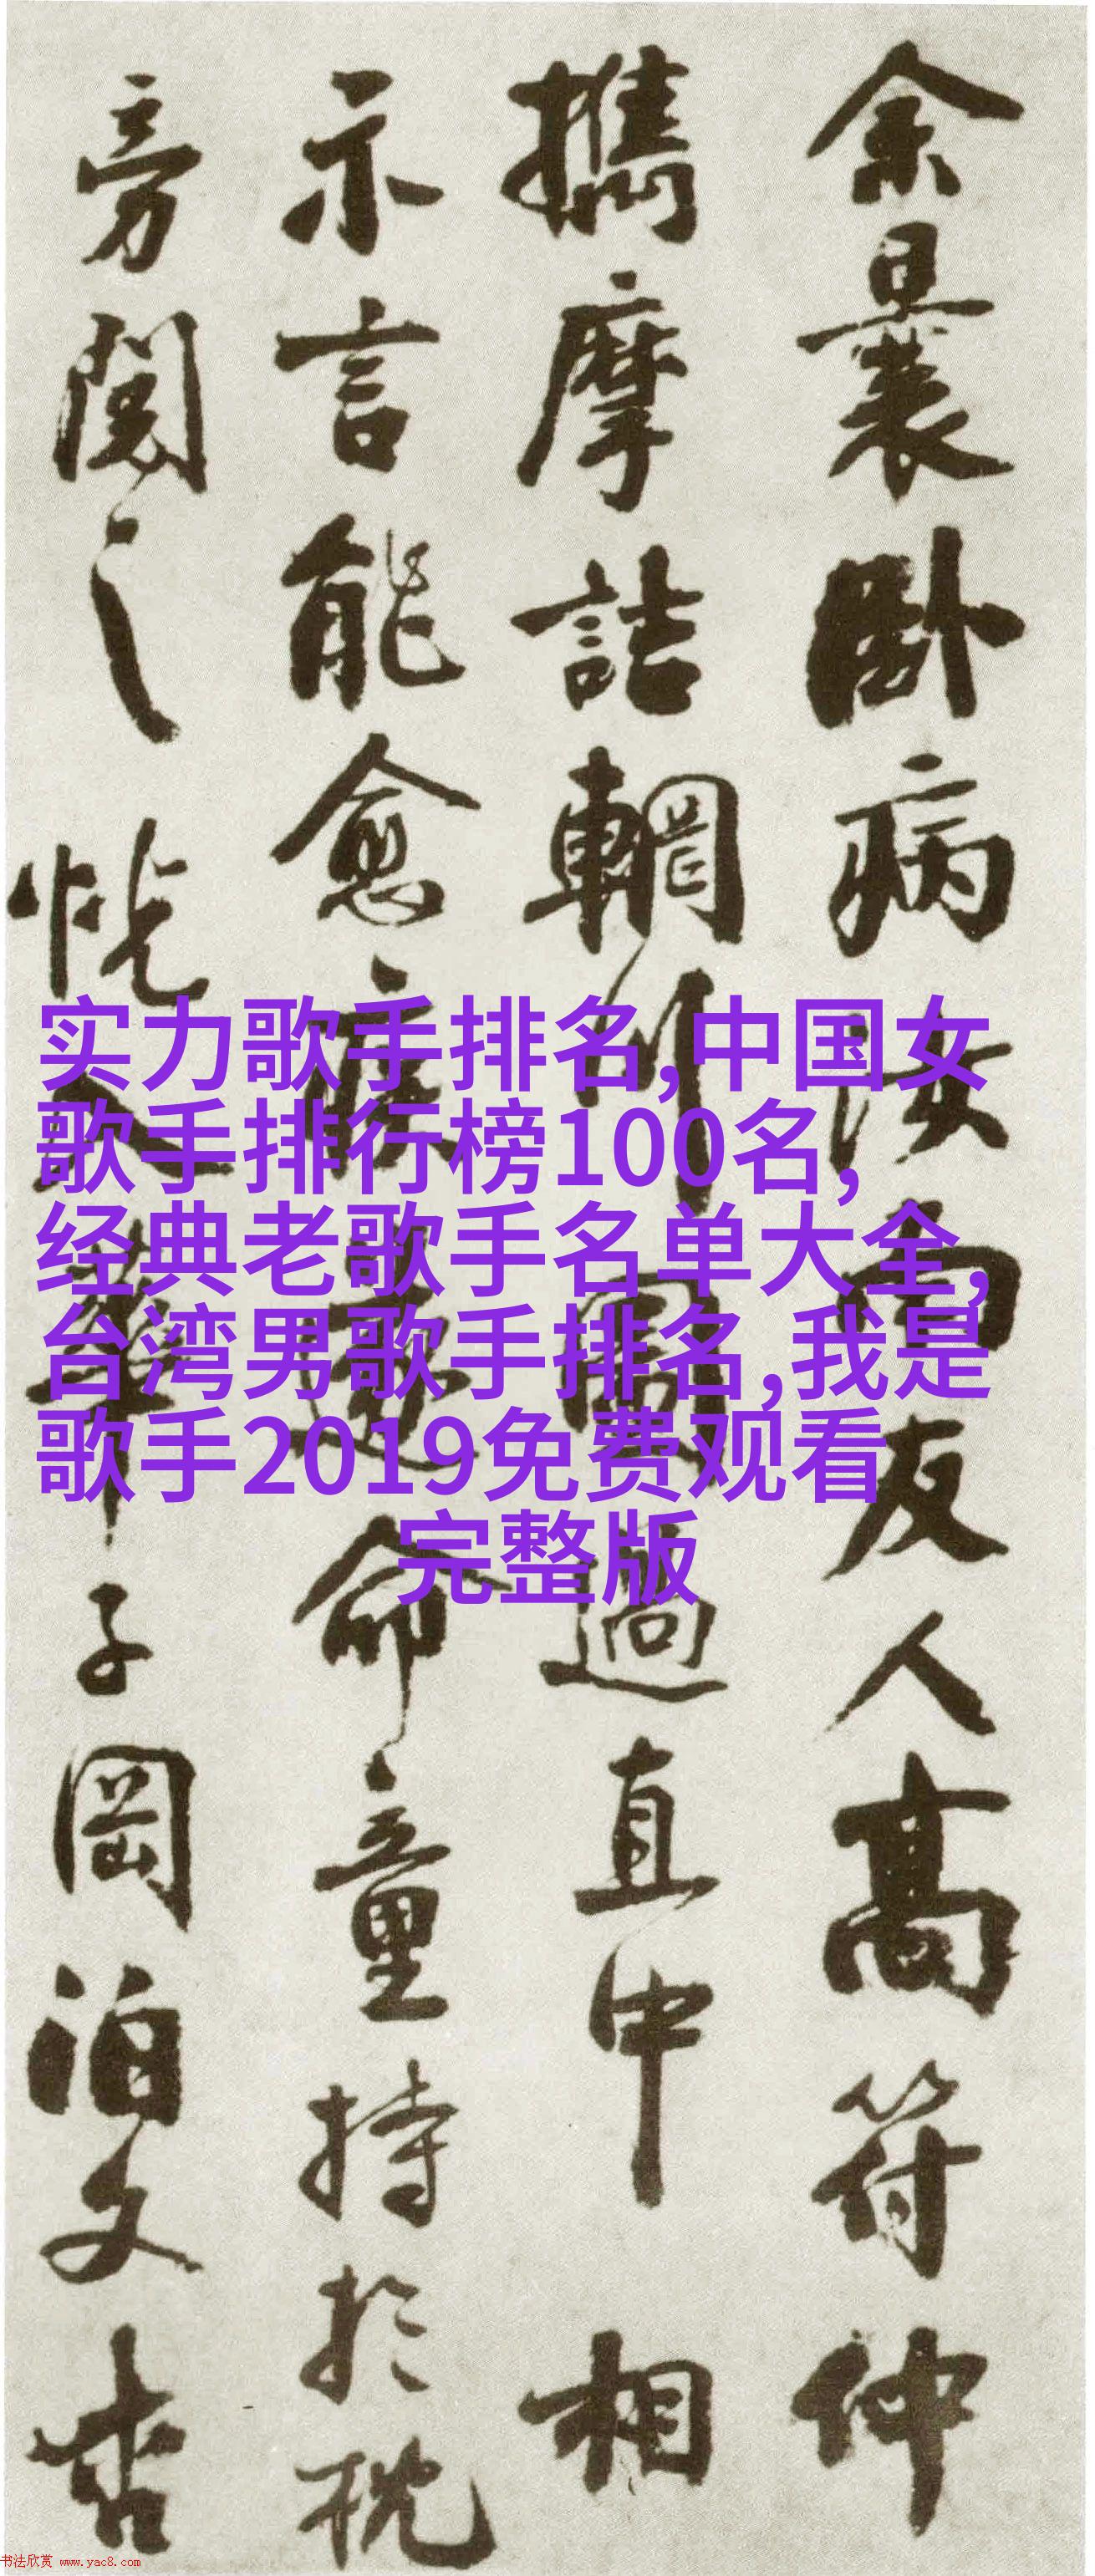 余曩卧病汝南友人高符仲
攜摩詰輞川圖過直中相
示言能愈疾遂命童持於枕
旁閱之恍入華子岡泊文杏
实力歌手排名,中国女
歌手排行榜100名,
经典老歌手名单大全,
台湾男歌手排名,我是
歌手2019免费观看
完整版
书法欣赏 www.yac8.com